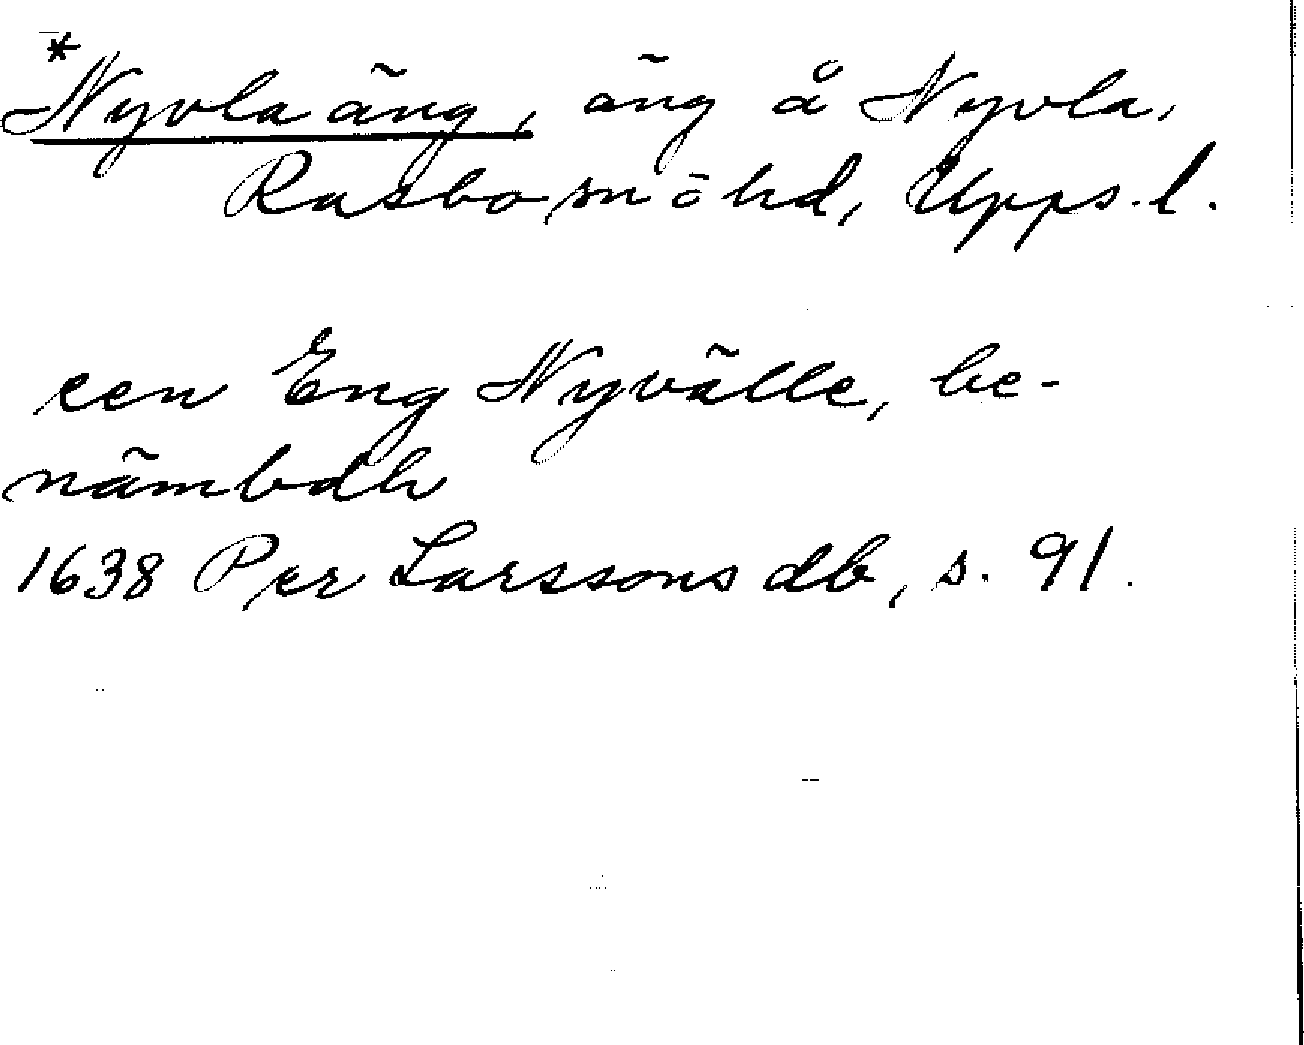 *Nyvla äng, äng å Nyvla,
Rasbo sn o hd, Upps. l.
een Eng Nyvälle, be-
nämbdh
1638 Per Larssons db, s. 91.